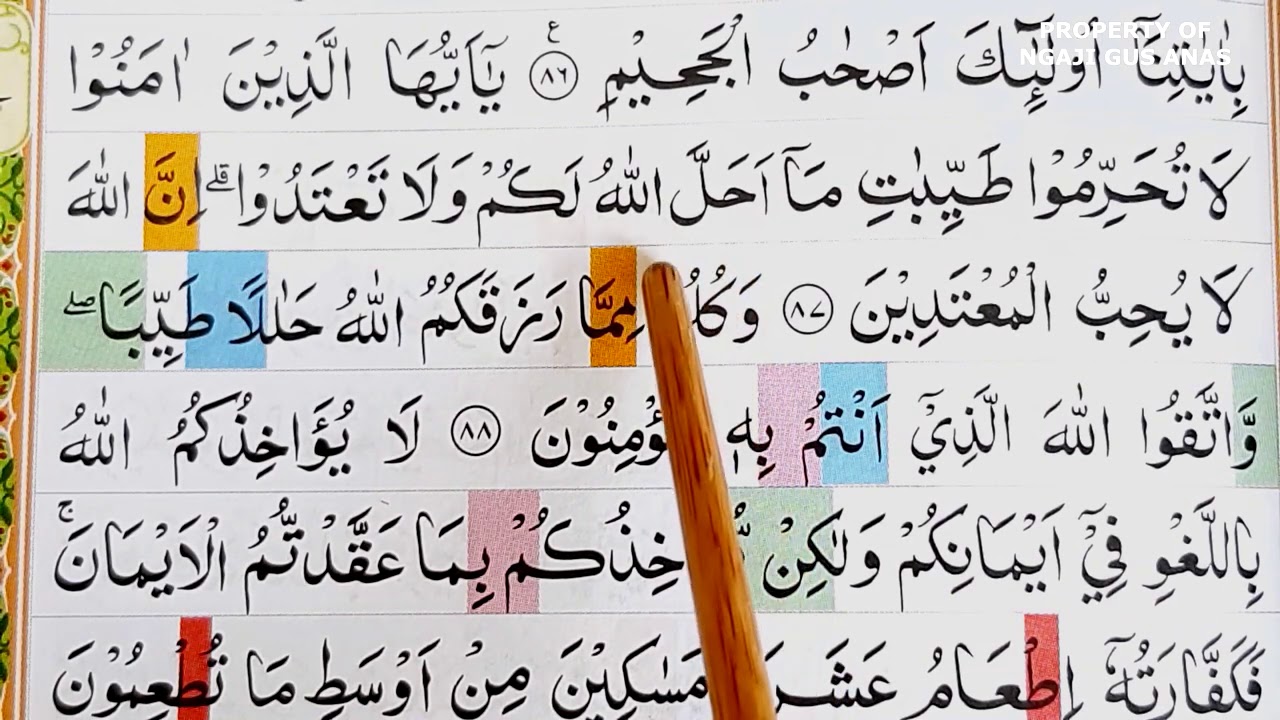 PROPERTY OF
NGAJI GUS ANAS
بِاٰيٰتِنَآ اُولٰۤىِٕكَ اَصْحٰبُ الْجَحِيْمِ ࣖ ٨٦ يٰٓاَيُّهَا الَّذِيْنَ اٰمَنُوْا
لَا تُحَرِّمُوْا طَيِّبٰتِ مَآ اَحَلَّ اللّٰهُ لَكُمْ وَلَا تَعْتَدُوْا ۗاِنَّ اللّٰهَ
لَا يُحِبُّ الْمُعْتَدِيْنَ ٨٧ مِمَّا رَزَقَكُمُ اللّٰهُ حَلٰلًا طَيِّبًا ۖ
وَّاتَّقُوا اللّٰهَ الَّذِيْٓ اَنْتُمْ بِهٖ ٨٨ لَا يُؤَاخِذُكُمُ اللّٰهُ
بِاللَّغْوِ فِيْٓ اَيْمَانِكُمْ وَلٰكِنْ بِمَا عَقَّدْتُّمُ الْاَيْمَانَ ۚ
فَكَفَّارَتُهٗٓ اِطْعَامُ مَسٰكِيْنَ مِنْ اَوْسَطِ مَا تُطْعِمُوْنَ